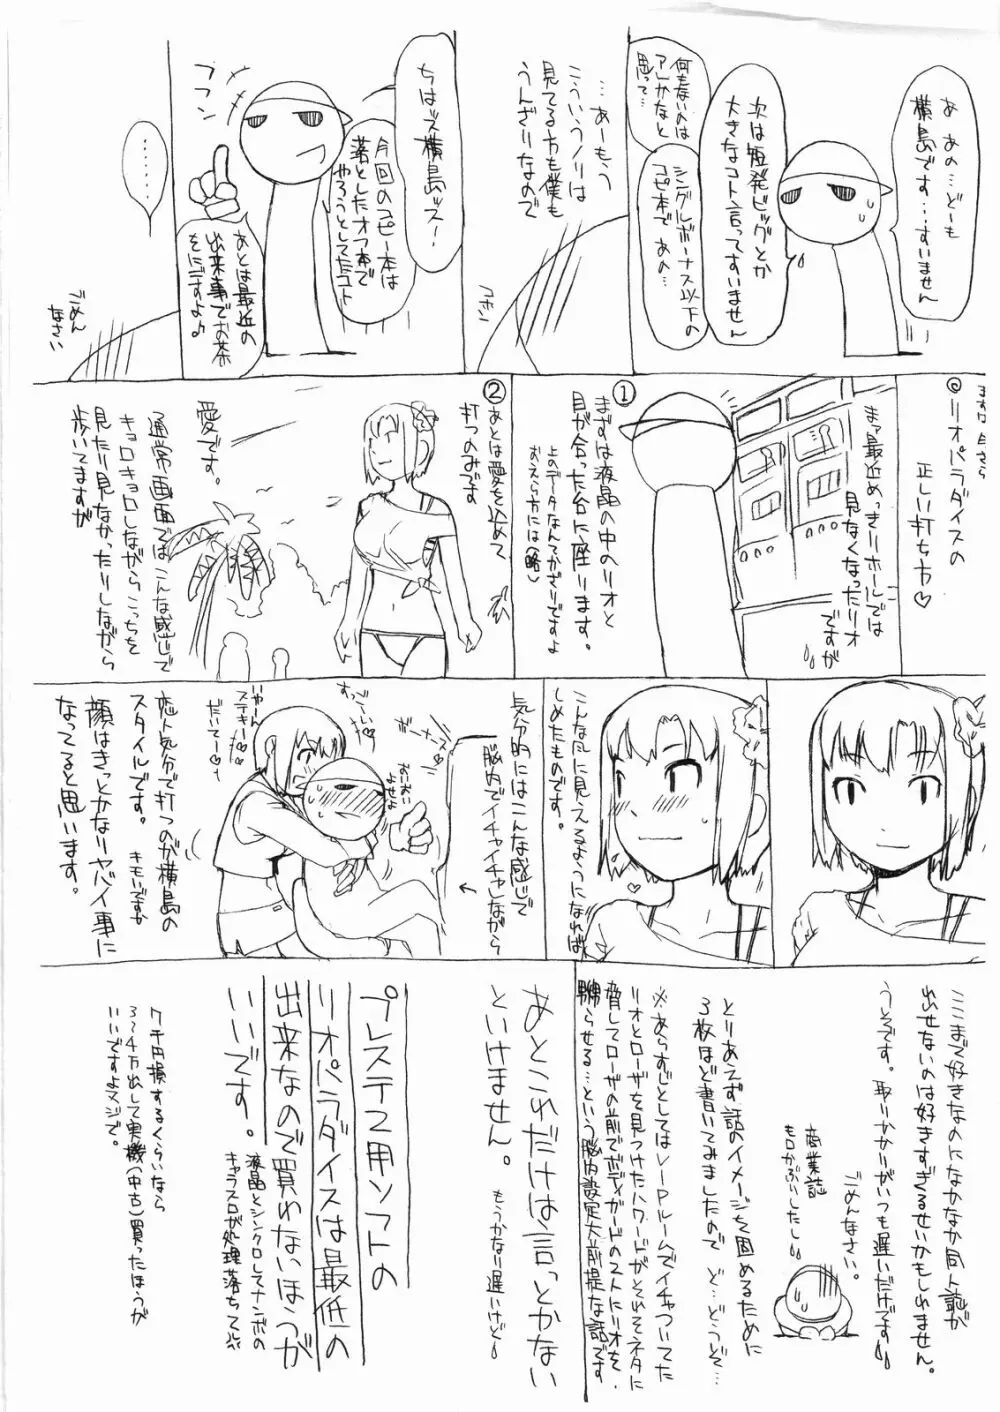 あ あの…どーも
横島です…すいません
次は短発ビッグとか
大きなコト言ってすいません
シングルボーナス以下の
コピ本で あの…
何もないのは
アレかなと
思って…
…あーもう
こういうノリは
見てる方も僕も
うんざりなので
コホン
ちはッス横島ッス!
今回のコピー本は
落としたオフ本で
やろうとしてたコト
あとは最近の
出来事でお茶
をにごすよ♪
フフン
……
ごめん
なさい
◎リオパラダイスの
正しい打ち方♡
まァ最近めっきりホールでは
見なくなったリオ
ですが
①
まずは液晶の中のリオと
目が合った台に座ります。
上のデータなんてかざりですよ
おえら方には(略)
②
あとは愛を込めて
打つのみです
愛です。
通常画面ではこんな感じで
キョロキョロしながらこっちを
見たり見なかったりしながら
歩いてますが
こんな風に見えるようになれば
しめたものです。
気分的にはこんな感じで
脳内でイチャイチャしながら
いやーん
ステキー♡
だいてー♡
恋人気分で打つのが横島の
スタイルです。
キモいですか
顔はきっとかなりヤバイ事に
なってると思います。
ここまで好きなのになかなか同人誌が
出せないのは好きすぎるせいかもしれません。
うそです。取りかかりがいつも遅いだけです
ごめんなさい。
商業誌
もロかぶりしたし
とりあえず話のイメージを固めるために
3枚ほど書いてみましたので ど…どうぞ…
※あらすじとしてはVIPルームでイチャついてた
リオとローザを見つけたハワードがそれをネタに
脅してローザの前でボディガードのストにリオを
嬲らせる…という脳内設定大前提な話です
あとこれだけは言っとかない
といけません。
もうかなり遅いけど
プレステ2用ソフトの
リオパラダイスは最低の
出来なので買わないほうが
いいです。
液晶とシンクロしてナンボの
キャラスロが処理落ちて
7千円損するくらいなら
3~4万出して実機(中古)買ったほうが
いいですよマジで。